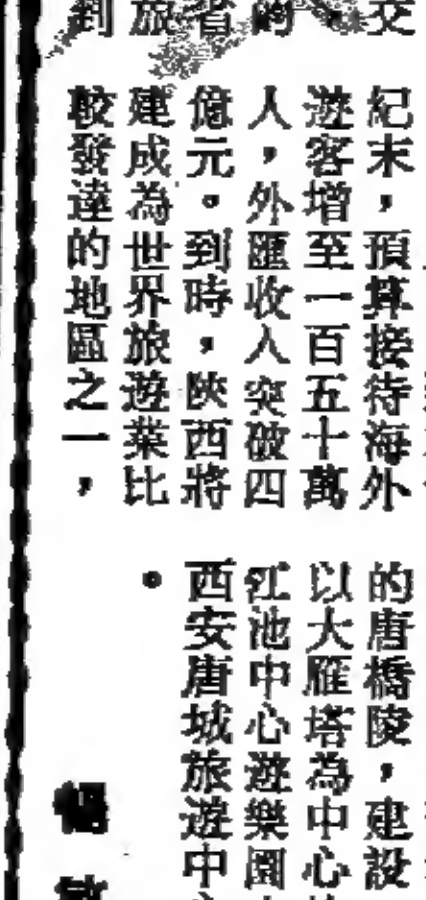 交
的
省
旅
到
紀末，預算接待海外
遊客增至一百五十萬
人，外匯收入突破四
億元。到時，陝西將
建成為世界旅遊業比
較發達的地區之一，
的唐橋陵，建設
以大雁塔為中心
江池中心遊樂園
西安唐城旅遊中
。